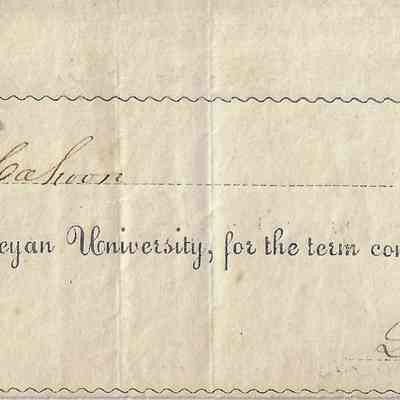 Cahoon
eyan University, for the term con